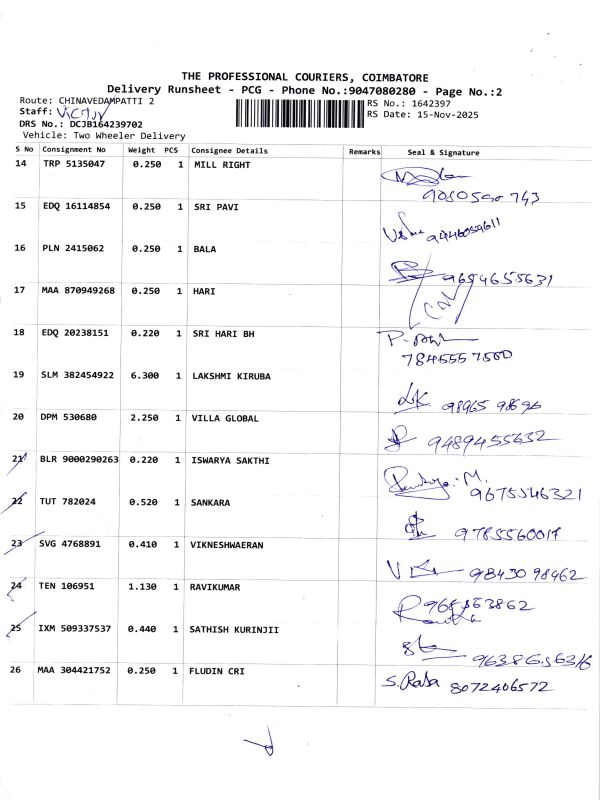 THE PROFESSIONAL COURIERS, COIMBATORE
Delivery Runsheet - PCG - Phone No.:9047080280 - Page No.:2
Route: CHINAVEDAMPATTI 2
RS No.: 1642397
Staff: Victor
RS Date: 15-Nov-2025
DRS No.: DCJB164239702
Vehicle: Two Wheeler Delivery
S No Consignment No Weight PCS Consignee Details Remarks Seal & Signature
14 TRP 5135047 0.250 1 MILL RIGHT
9080590743
15 EDQ 16114854 0.250 1 SRI PAVI
9446059611
16 PLN 2415062 0.250 1 BALA
9654655631
17 MAA 870949268 0.250 1 HARI
18 EDQ 20238151 0.220 1 SRI HARI BH
7845557500
19 SLM 382454922 6.300 1 LAKSHMI KIRUBA
98965 98696
20 DPM 530680 2.250 1 VILLA GLOBAL
9489455632
21 BLR 9000290263 0.220 1 ISWARYA SAKTHI
9675546321
22 TUT 782024 0.520 1 SANKARA
9785560017
23 SVG 4768891 0.410 1 VIKNESHWAERAN
98430 98462
24 TEN 106951 1.130 1 RAVIKUMAR
25 IXM 509337537 0.440 1 SATHISH KURINJII
26 MAA 304421752 0.250 1 FLUDIN CRI
S. Raja 8072406572